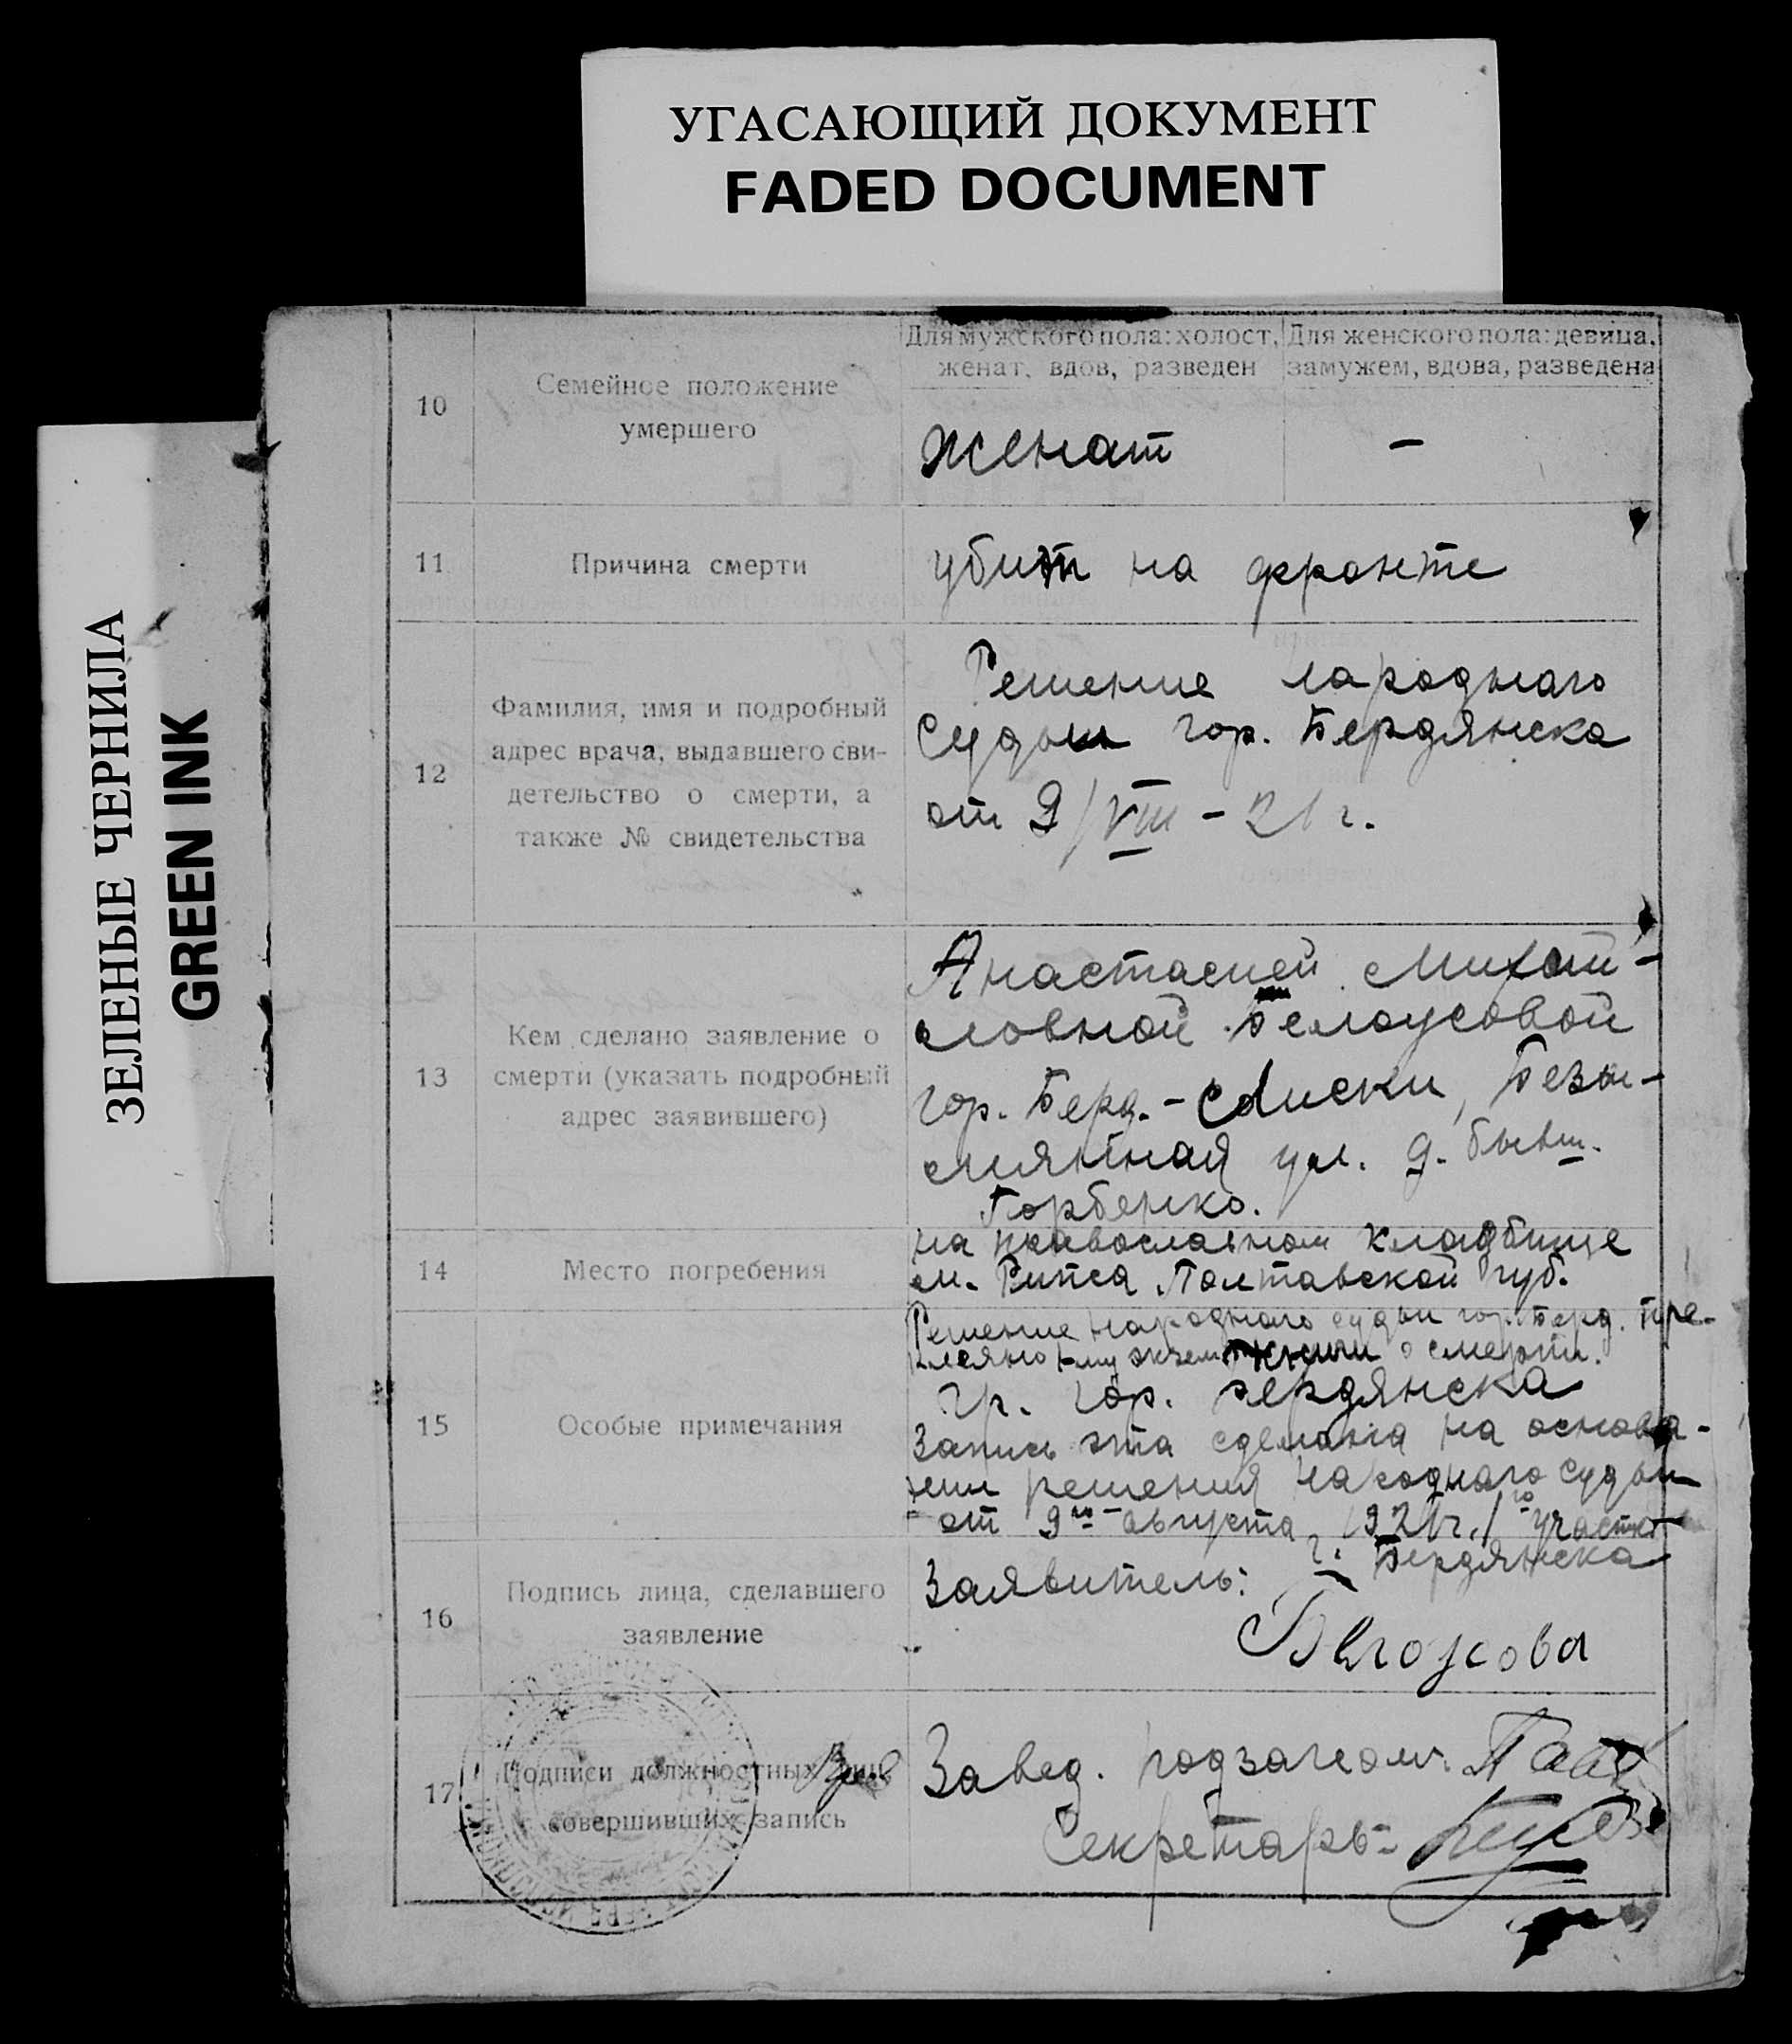 УГАСАЮЩИЙ ДОКУМЕНТ
FADED DOCUMENT
ЗЕЛЕНЫЕ ЧЕРНИЛА
GREEN INK
10
Семейное положение
умершего
Для мужского пола: холост,
женат, вдов, разведен
Для женского пола: девица,
замужем, вдова, разведена
женат
–
11
Причина смерти
убит на фронте
12
Фамилия, имя и подробный
адрес врача, выдавшего сви-
детельство о смерти, а
также № свидетельства
Решение народнаго
Судьи гор. Бердянска
от 9/VIII – 21 г.
13
Кем сделано заявление о
смерти (указать подробный
адрес заявившего)
Анастасией Михай-
ловной Белоусовой
гор. Берд. – Лиски, Безы-
мянная ул. д. бывш.
Горбенко.
14
Место погребения
на православном кладбище
Полтавской губ.
15
Особые примечания
Решение народнаго судьи гор. Берд. при-
клеяно книги о смерти.
гр. гор. Бердянска
Запись эта сделана на основа-
нии решения народнаго судьи
от 9го августа 1921 г. 1го участка
г. Бердянска
16
Подпись лица, сделавшего
заявление
Заявитель:
Белоусова
17
Подписи должностных лиц,
совершивших запись
Завед. подзагсом:
Секретарь: